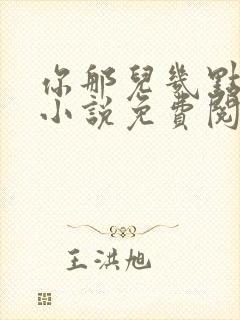 你那兒幾點
小說免費閱
王洪旭